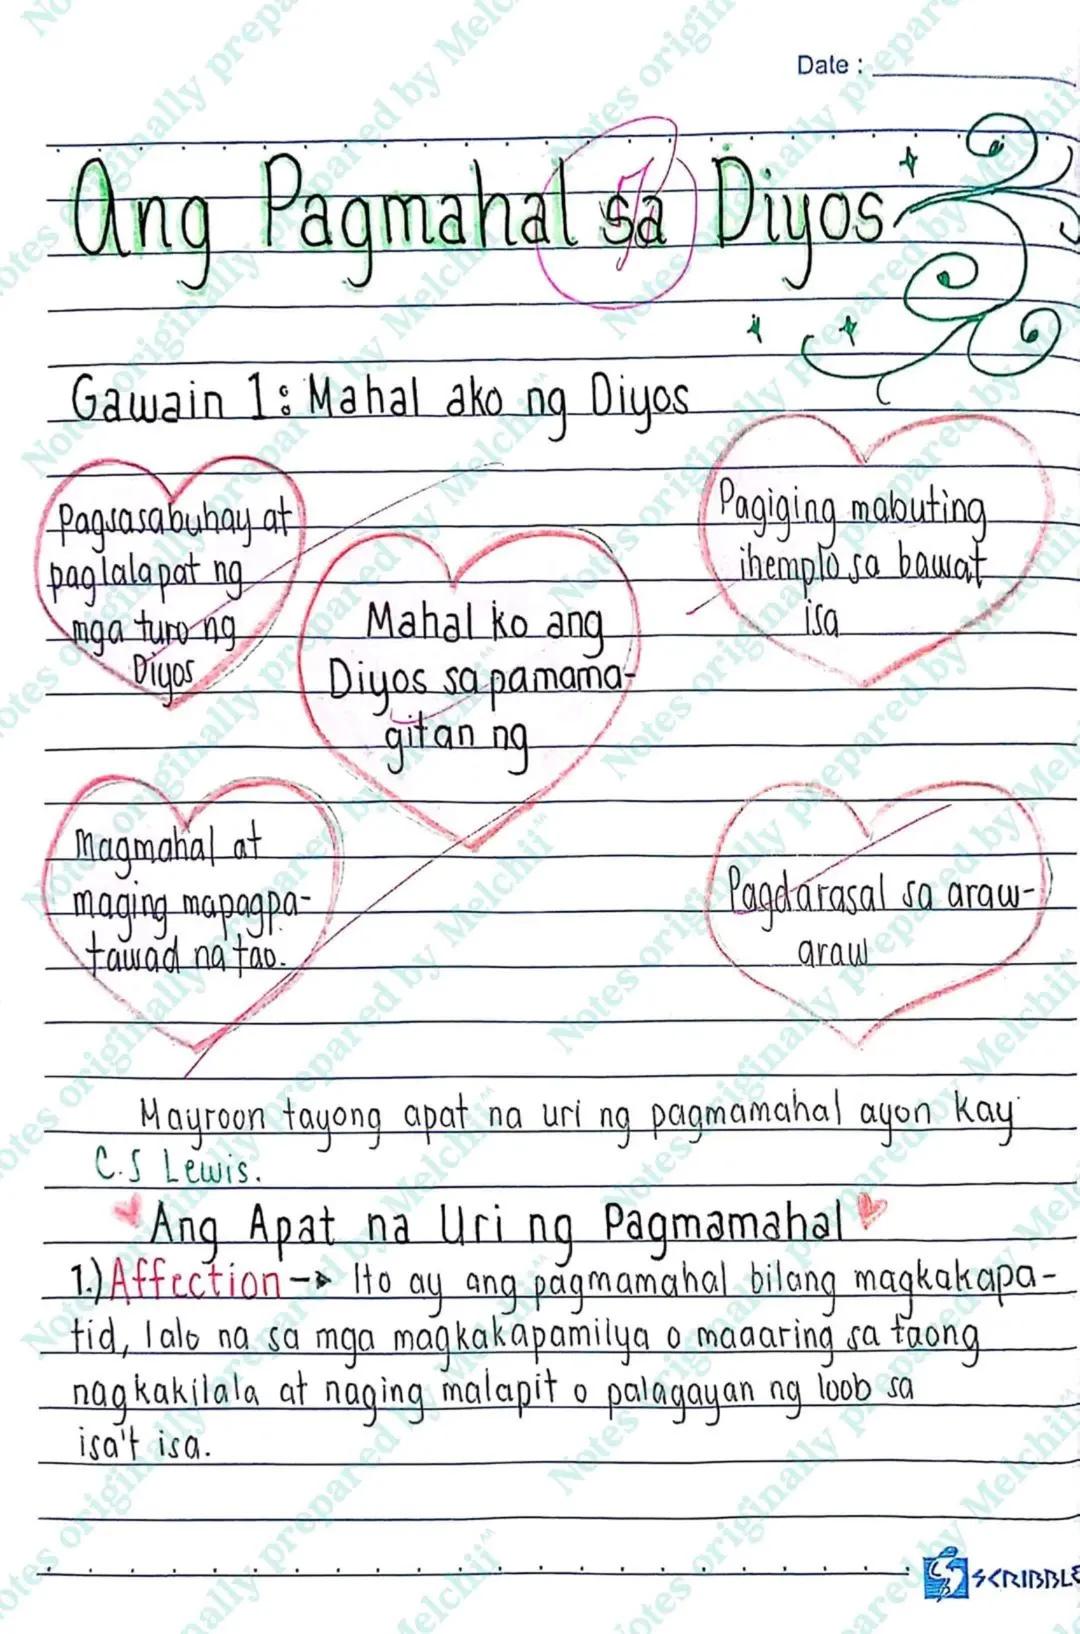 Date :
Ang Pagmahal sa Diyos
Gawain 1: Mahal ako ng Diyos
Pagsasabuhay at
paglalapat ng
mga turo ng
Diyos
Mahal ko ang
Diyos sa pamama-
gitan ng
Pagiging mabuting
ihemplo sa bawat
isa
Magmahal at
maging mapagpa-
tawad na tao.
Pagdarasal sa araw-
araw
Mayroon tayong apat na uri ng pagmamahal ayon kay
C.S Lewis.
Ang Apat na Uri ng Pagmamahal
1.) Affection -> Ito ay ang pagmamahal bilang magkakapa-
tid, lalo na sa mga magkakapamilya o maaaring sa taong
nagkakilala at naging malapit o palagayan ng loob sa
isa't isa.
SCRIBBLE
Notes originally prepared by Melchii^^